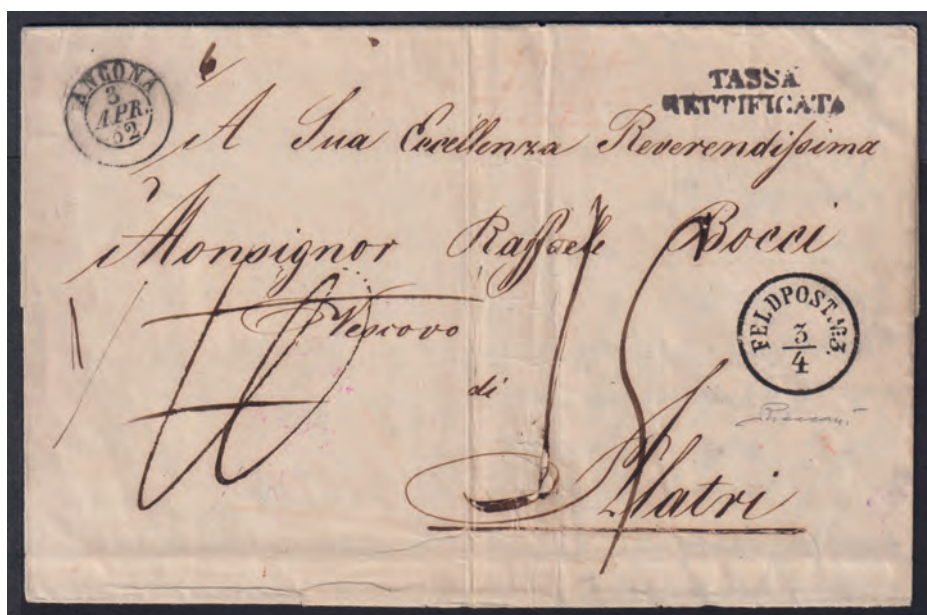 ANCONA
3
APR.
62
6
TASSA
RETTIFICATA
A Sua Eccellenza Reverendissima
Monsignor Raffaele Bocci
Vescovo
di
Alatri
FELDPOST. No 3.
3
4